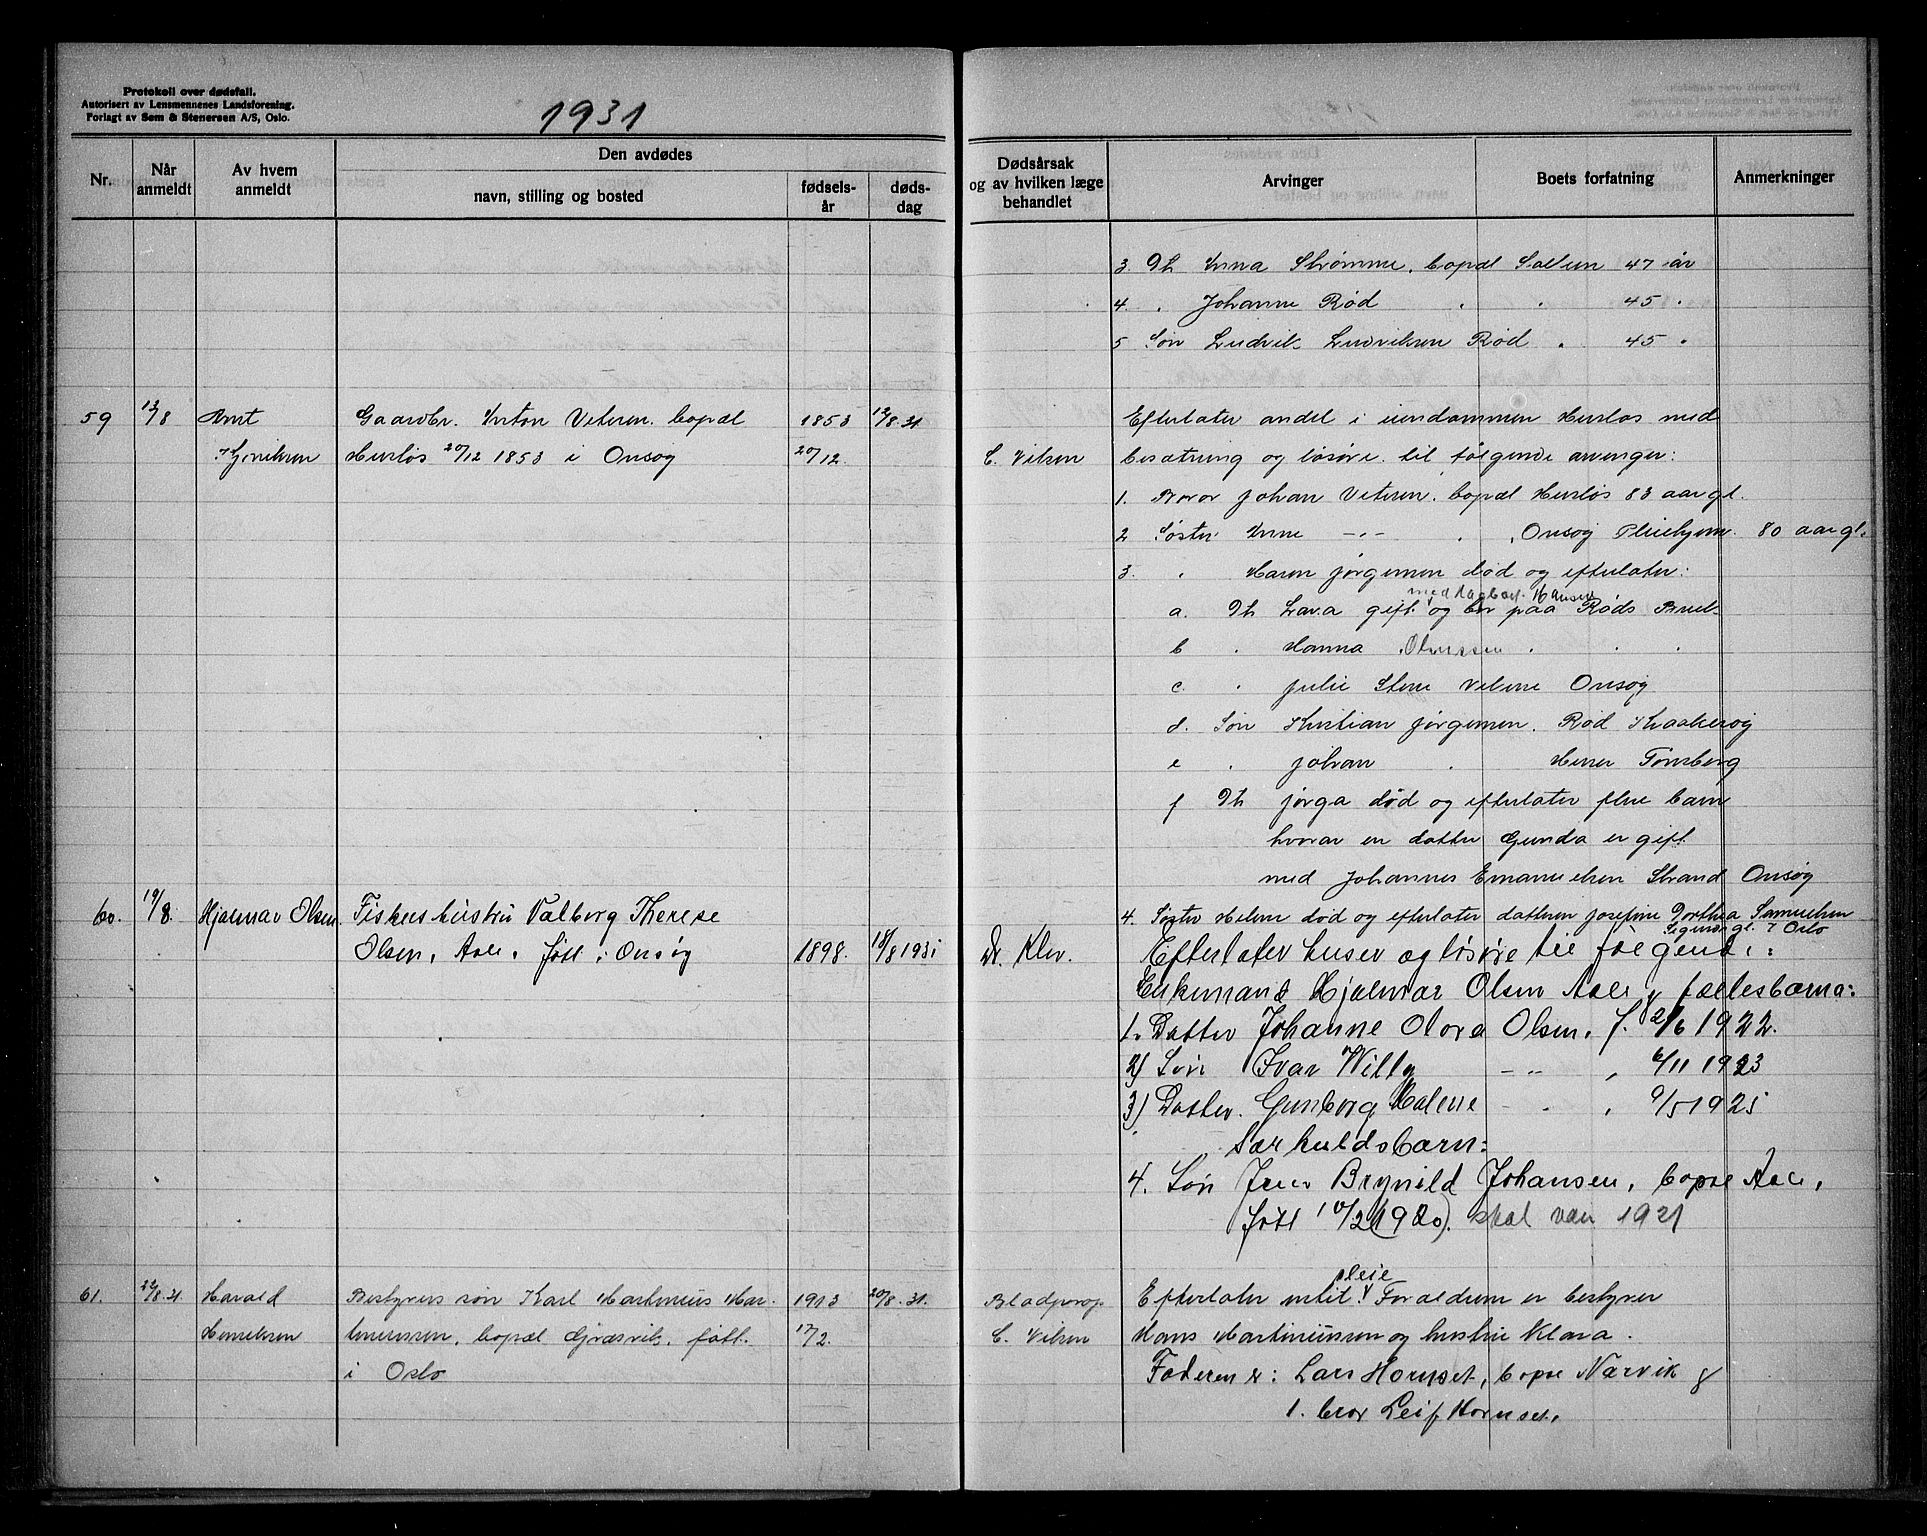 Protokoll over dødsfall.
Autorisert av Lensmennenes Landsforening.
Forlagt av Sem & Stenersen A/S, Oslo.
1931
Nr.
Når anmeldt
Av hvem anmeldt
Den avdødes
navn, stilling og bosted
fødsels-år
døds-dag
Dødsårsak og av hvilken læge behandlet
Arvinger
Boets forfatning
Anmerkninger
3. Dt. Anna Strømme, bopæl Sollien 47 år
4. " Johanne Rød " " 45 "
5 Søn Ludvik Ludviksen Rød " 45 "
59 13/8 Arnt Henriksen
Gaardbr. Anton Petersen. bopæl
Hurløs 20/12 1853 i Onsøy
1853 20/12.
12/8.31
C. Vilsen
Efterlater andel i eiendommen Hurløs med
besætning og løsøre. til følgende arvinger:
1. Broror Johan Petersen. bopæl Hurløs 83 aar gl.
2 Søster Anne -"- " , Onsøy Pleiehjem. 80 aar gl.
3. " Haren Jørgensen død og efterlater:
med Dagbart Hansen
a. Dt Lava gift og bor paa Røds Bruk-
b " Hanna Olaussen " " "
c. " Julie Stene Vilene Onsøy
d. Søn Kristian Jørgensen. Rød Kraakerøy
e " Johan " Herser Tønsberg
f Dt Jørga død og efterlater flere barn
hvorav en datter Gunda er gift
med Johannes Emanuelsen Strand Onsøy
4. Søster Helene død og efterlater datteren Josefine Dorthea Samuelsen
Oslo
60. 19/8. Hjalmar Olsen
Fiskerhustru Valborg Therese
Olsen, Aale, født i Onsøy
1898. 18/8 1931
Dr. Klev.
Efterlater huser og løsøre til følgende:
Enkemand Hjalmar Olsen Aale & fællesbarna:
1. Datter Johanne Olora Olsen, f. 2/6 1922.
2) Søn Ivar Willy -"- , 6/11 1923
3) Datter. Gunborg Malene - " , 9/5 1925
Særkuldsbarn:
4. Søn Jens Brynild Johansen, bopæl Aale,
født 10/2 (1920). skal være 1921
61. 22/8.31 Harald Henriksen
Bestyrers søn Karl Martinius Mar-
tinussen, bopæl Græsvik, født
i Oslo
1913 17/2.
20/8.31.
Blodprop
C. Vilsen
Efterlater intet. Foraldrene er bestyrer
pleie
Hans Martiniussen og hustru Klara.
Faderen er: Lars Hornset, bopæl Narvik &
1. bror Leif Hornset.